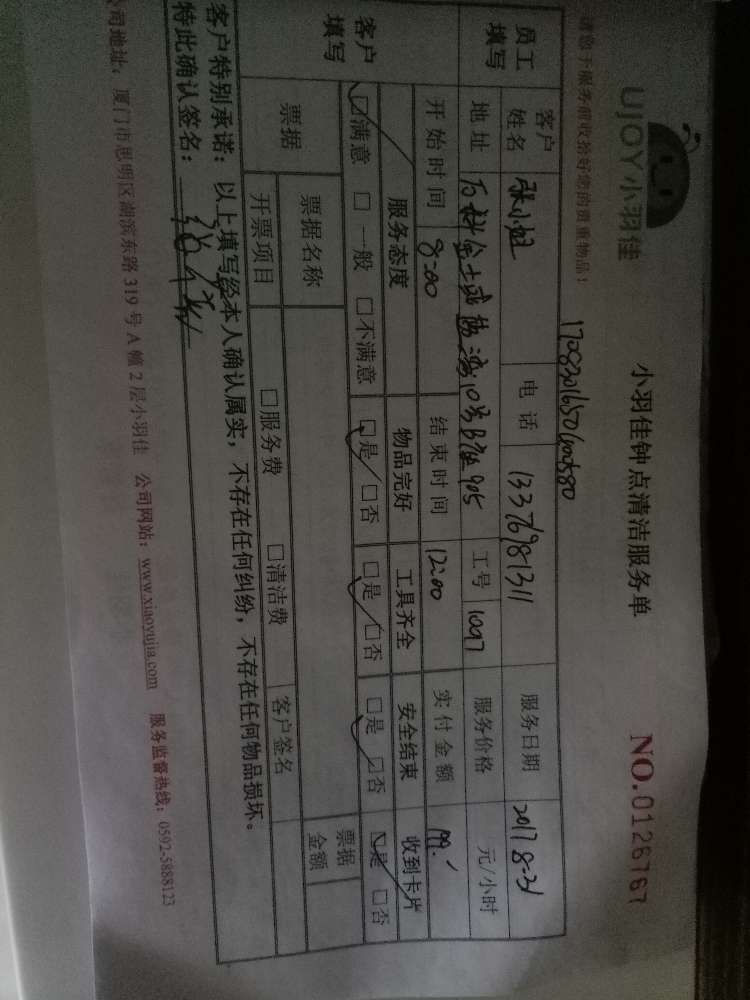 UJOY小羽佳
小羽佳钟点清洁服务单
NO.0126767
请您于服务前收拾好您的贵重物品!
员工填写
客户姓名 张小姐 电话 13376981311 服务日期 2017 8-31
地址 万科金土或 10号 905 工号 1097 服务价格 元/小时
开始时间 8:00 结束时间 12:00 实付金额 99.
客户填写
服务态度 物品完好 工具齐全 安全结束 收到卡片
☑满意 □一般 □不满意 ☑是 □否 ☑是 □否 ☑是 □否 ☑是 □否
票据 票据名称 票据金额
开票项目 □服务费 □清洁费 客户签名
客户特别承诺:以上填写经本人确认属实,不存在任何纠纷,不存在任何物品损坏。
特此确认签名:
公司地址:厦门市思明区湖滨东路319号A幢2层小羽佳 公司网站:www.xiaoyujia.com 服务监督热线:0592-5888123